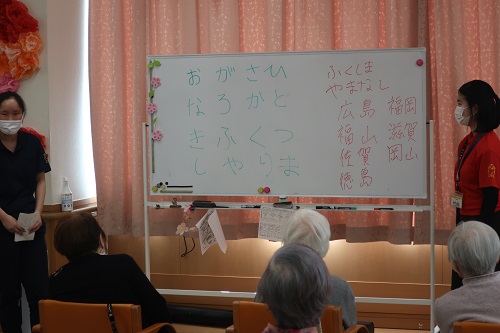 おがさひ
なろかど
きふくつ
しやりま
ふくしま
やまなし
広島 福岡
福山 滋賀
佐賀 岡山
徳島